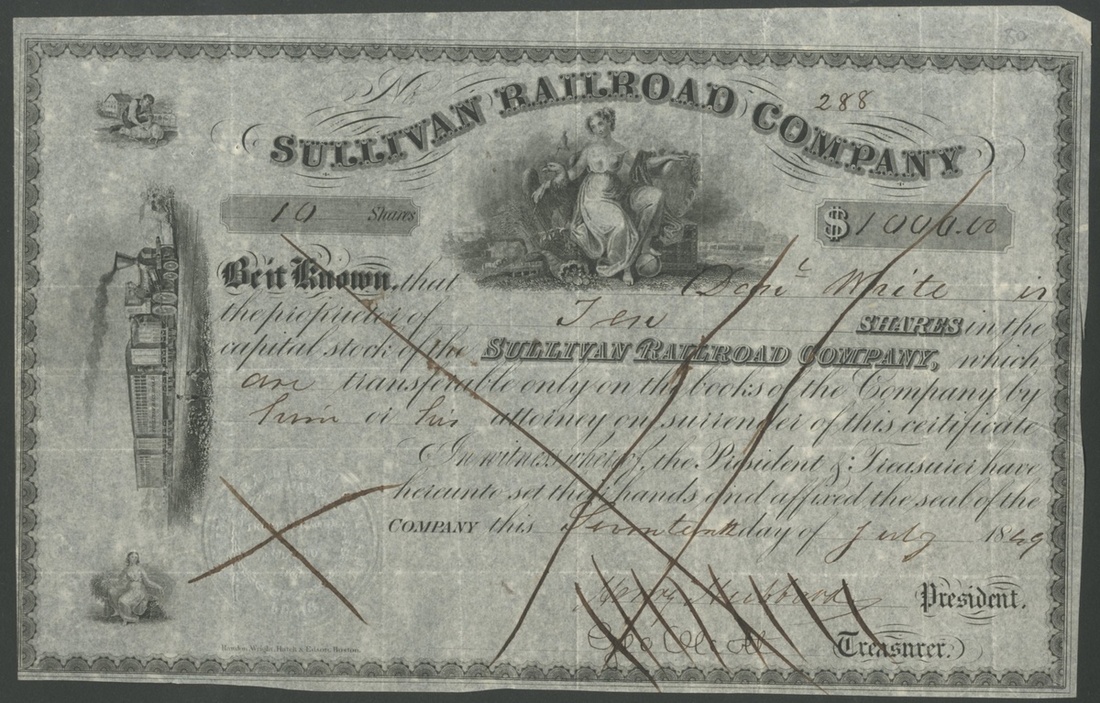 50
No 288
SULLIVAN RAILROAD COMPANY
10 Shares $1000.00
Be it Known, that Danl White is
the proprietor of Ten SHARES in the
capital stock of the SULLIVAN RAILROAD COMPANY, which
are transferable only on the books of the Company by
him or his attorney on surrender of this certificate
In witness whereof, the President & Treasurer have
hereunto set their hands and affixed the seal of the
COMPANY this Seventeenth day of July 1849
Henry Hubbard President.
Geo Olcott Treasurer.
Rawdon, Wright, Hatch & Edson, Boston.